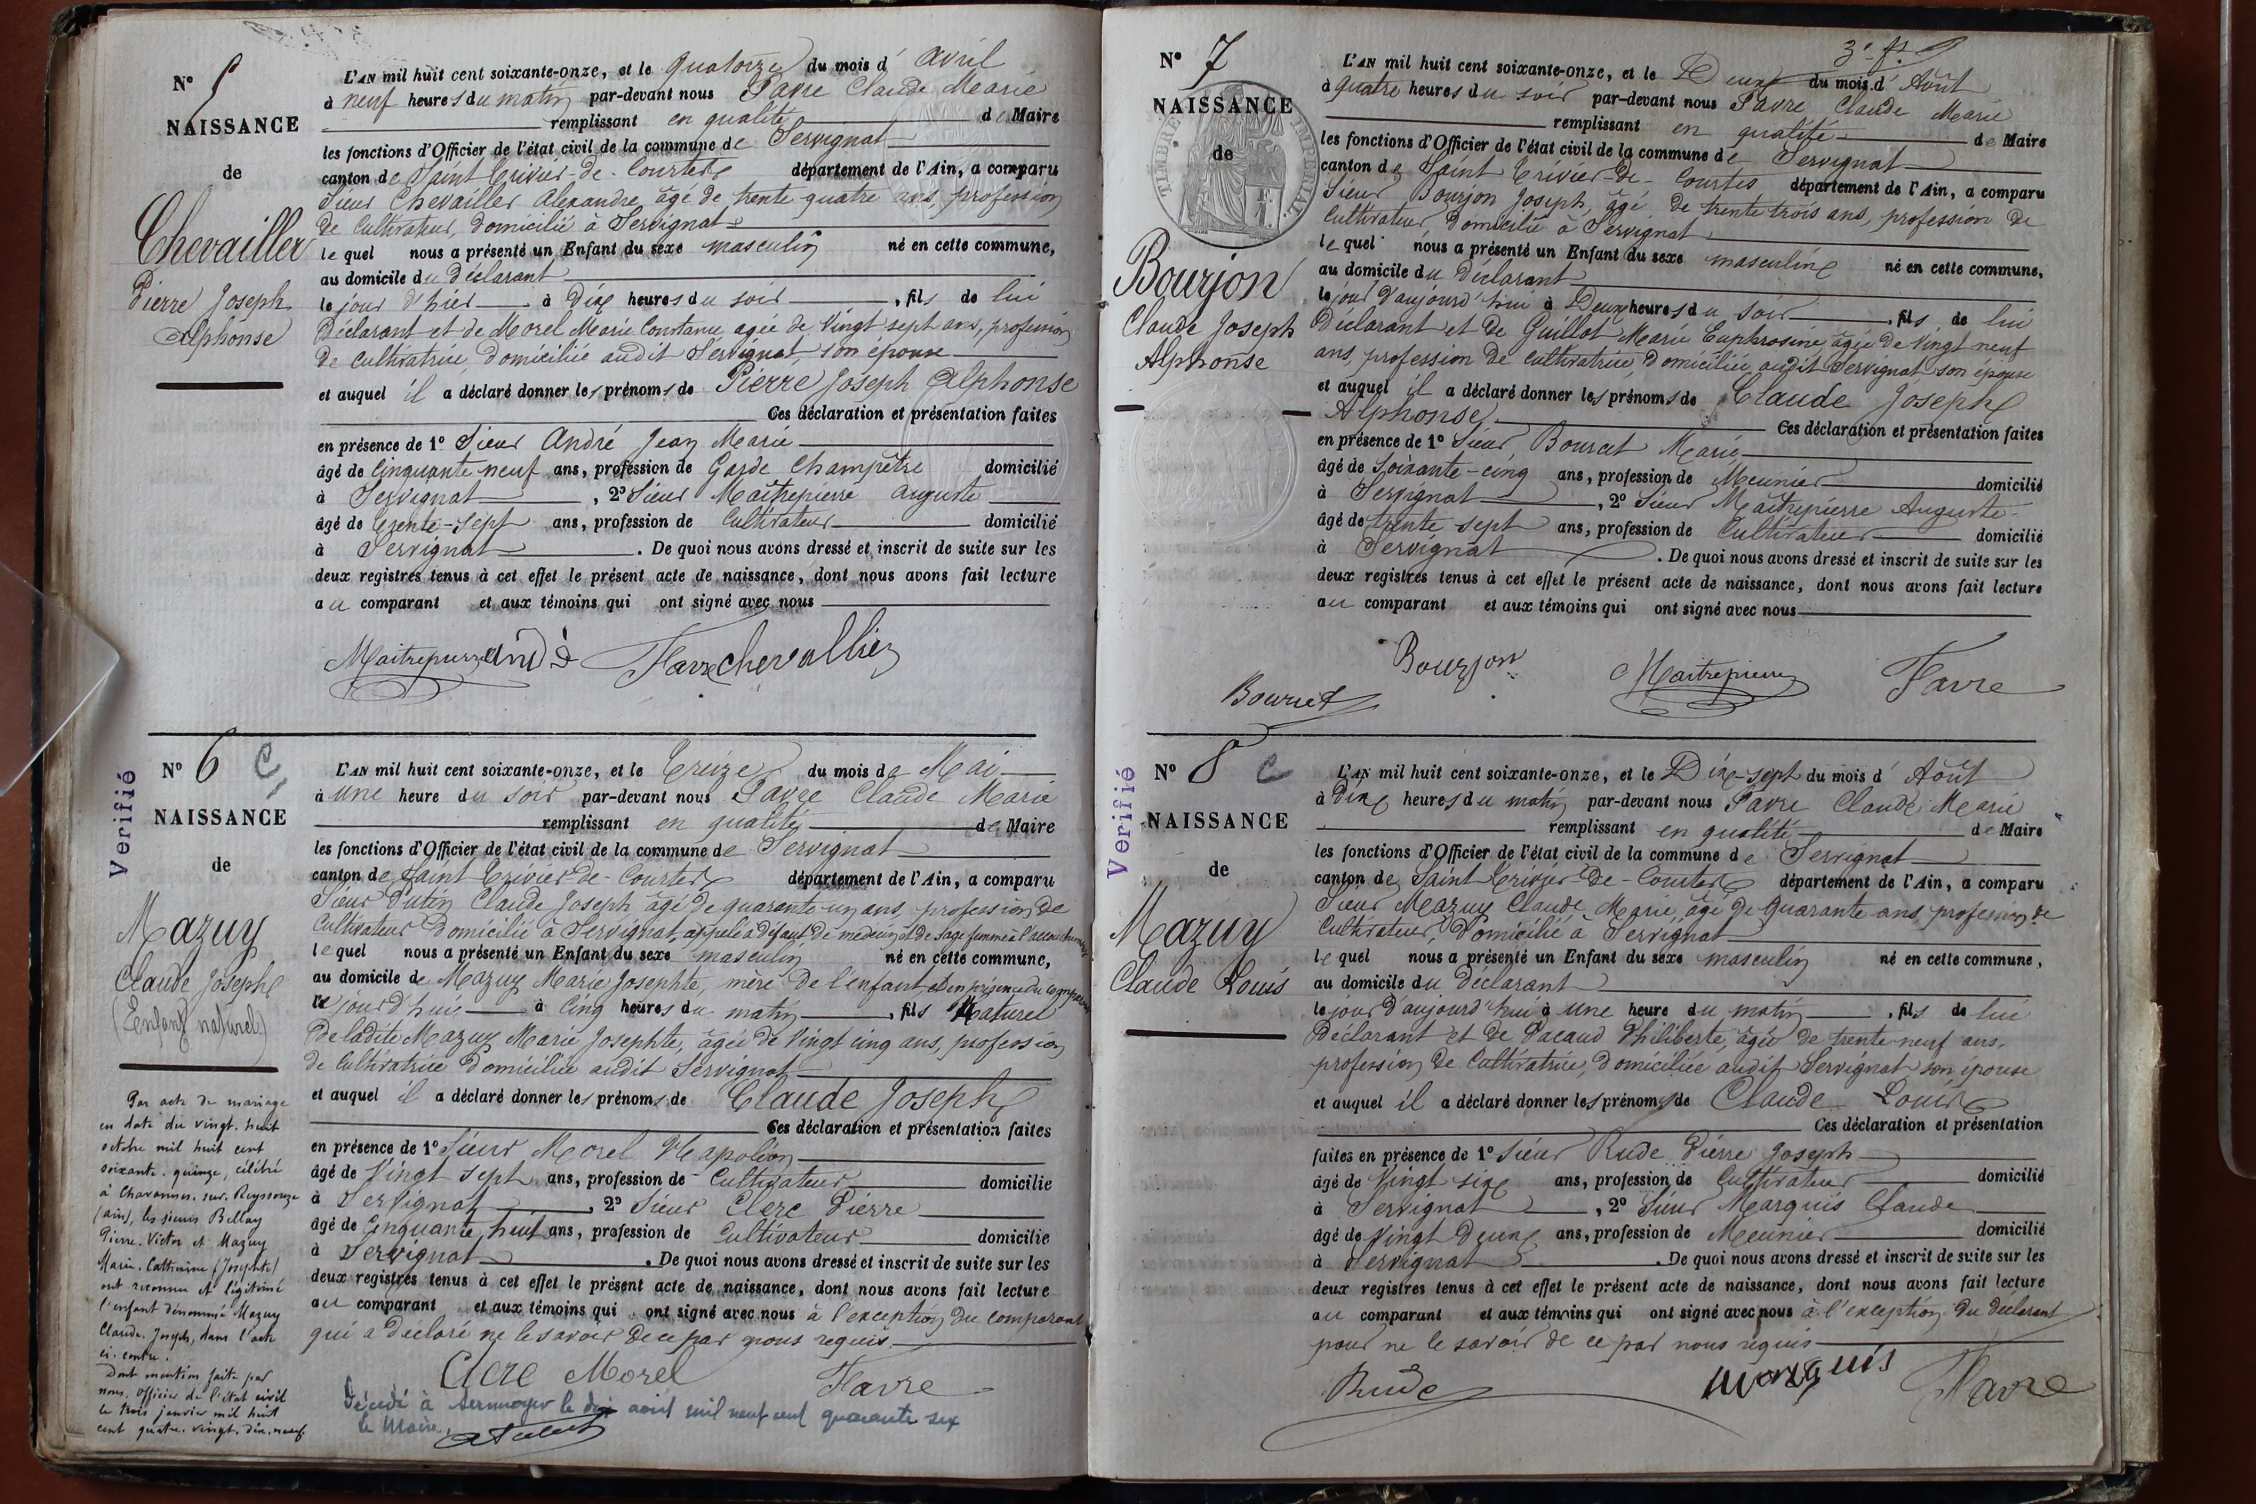 N° 5
NAISSANCE
de
Chevailler
Pierre Joseph
Alphonse
L'AN mil huit cent soixante-onze, et le Quatorze du mois d'Avril
à neuf heures du matin par-devant nous Favre Claude Marie
remplissant en qualité de Maire
les fonctions d'Officier de l'état civil de la commune de Servignat
canton de Saint Trivier-de-Courtes département de l'Ain, a comparu
Sieur Chevailler Alexandre, âgé de trente quatre ans, profession
de cultivateur, domicilié à Servignat
lequel nous a présenté un Enfant du sexe masculin né en cette commune,
au domicile du déclarant
le jour d'hier à Dix heures du soir, fils de lui
Déclarant et de Morel Marie Constance agée de vingt sept ans, profession
de cultivatrice, domiciliée audit Servignat son épouse
et auquel il a déclaré donner les prénoms de Pierre Joseph Alphonse
Ces déclaration et présentation faites
en présence de 1° Sieur André Jean Marie
âgé de Cinquante neuf ans, profession de Garde Champêtre domicilié
à Servignat, 2° Sieur Maitrepierre Auguste
âgé de trente-sept ans, profession de Cultivateur domicilié
à Servignat. De quoi nous avons dressé et inscrit de suite sur les
deux registres tenus à cet effet le présent acte de naissance, dont nous avons fait lecture
au comparant et aux témoins qui ont signé avec nous
Maitrepierre andé Favre chevallier
Verifié
N° 6 C
NAISSANCE
de
Mazuy
Claude Joseph
(Enfant naturel)
L'AN mil huit cent soixante-onze, et le Treize du mois de Mai
à une heure du soir par-devant nous Favre Claude Marie
remplissant en qualité de Maire
les fonctions d'Officier de l'état civil de la commune de Servignat
canton de Saint Trivier-de-Courtes département de l'Ain, a comparu
Sieur Putin Claude Joseph âgé de quarante-un ans, profession de
Cultivateur domicilié à Servignat, appelé à défaut de médecin et de sage femme à l'accouchement
lequel nous a présenté un Enfant du sexe masculin né en cette commune,
au domicile de Mazuy Marie Josephte, mère de l'enfant et en présence du comparant
ce jour d'hui à Cinq heures du matin, fils Naturel
de ladite Mazuy Marie Josephte, âgée de vingt cinq ans, profession
de cultivatrice domiciliée audit Servignat
et auquel il a déclaré donner les prénoms de Claude Joseph
Ces déclaration et présentation faites
en présence de 1° Sieur Morel Napoléon
âgé de Vingt sept ans, profession de Cultivateur domicilié
à Servignat, 2° Sieur Clerc Pierre
âgé de Cinquante huit ans, profession de Cultivateur domicilié
à Servignat. De quoi nous avons dressé et inscrit de suite sur les
deux registres tenus à cet effet le présent acte de naissance, dont nous avons fait lecture
au comparant et aux témoins qui ont signé avec nous à l'exception du comparant
qui a déclaré ne le savoir de ce par nous requis
Clerc Morel Favre
Décédé à Sermoyer le dix août mil neuf cent quarante six
le Maire,
Par acte de mariage
en date du vingt-huit
octobre mil huit cent
soixante-quinze, célébré
à Chavannes-sur-Reyssouze
(ain), les sieurs Bellay
Pierre-Victor et Mazuy
Marie-Catherine (Josephte)
ont reconnu et légitimé
l'enfant dénommé Mazuy
Claude-Joseph, dans l'acte
ci-contre.
Dont mention faite par
nous, officier de l'état civil
le trois janvier mil huit
cent quatre-vingt-dix-neuf
3e ft.
N° 7
NAISSANCE
de
TIMBRE IMPERIAL
Bourjon
Claude Joseph
Alphonse
L'AN mil huit cent soixante-onze, et le Deux du mois d'Août
à quatre heures du soir par-devant nous Favre Claude Marie
remplissant en qualité de Maire
les fonctions d'Officier de l'état civil de la commune de Servignat
canton de Saint Trivier-de-Courtes département de l'Ain, a comparu
Sieur Bourjon Joseph, âgé de trente trois ans, profession de
Cultivateur, domicilié à Servignat
lequel nous a présenté un Enfant du sexe masculin né en cette commune,
au domicile du Déclarant
le jour d'aujourd'hui à Deux heures du soir, fils de lui
Déclarant et de Guillot Marie Euphrosine âgée de vingt neuf
ans, profession de cultivatrice, domiciliée audit Servignat son épouse
et auquel il a déclaré donner les prénoms de Claude Joseph
Alphonse Ces déclaration et présentation faites
en présence de 1° Sieur Bourcet Marie
âgé de Soixante-cinq ans, profession de Meunier domicilié
à Servignat, 2° Sieur Maitrepierre Auguste
âgé de trente sept ans, profession de Cultivateur domicilié
à Servignat. De quoi nous avons dressé et inscrit de suite sur les
deux registres tenus à cet effet le présent acte de naissance, dont nous avons fait lecture
au comparant et aux témoins qui ont signé avec nous
Bourjon Maitrepierre Favre
Bourcet
Verifié
N° 8 C
NAISSANCE
de
Mazuy
Claude Louis
L'AN mil huit cent soixante-onze, et le Dix-sept du mois d'Août
à Dix heures du matin par-devant nous Favre Claude Marie
remplissant en qualité de Maire
les fonctions d'Officier de l'état civil de la commune de Servignat
canton de Saint Trivier-de-Courtes département de l'Ain, a comparu
Sieur Mazuy Claude Marie, âgé de Quarante ans, profession de
Cultivateur, domicilié à Servignat
lequel nous a présenté un Enfant du sexe masculin né en cette commune,
au domicile du déclarant
le jour d'aujourd'hui à une heure du matin, fils de lui
Déclarant et de Pacaud Philiberte, âgée de trente-neuf ans,
profession de Cultivatrice, domiciliée audit Servignat son épouse
et auquel il a déclaré donner les prénoms de Claude Louis
Ces déclaration et présentation
faites en présence de 1° Sieur Rude Pierre Joseph
âgé de Vingt six ans, profession de Cultivateur domicilié
à Servignat, 2° Sieur Marquis Claude
âgé de Vingt Deux ans, profession de Meunier domicilié
à Servignat. De quoi nous avons dressé et inscrit de suite sur les
deux registres tenus à cet effet le présent acte de naissance, dont nous avons fait lecture
au comparant et aux témoins qui ont signé avec nous à l'exception du déclarant
pour ne le savoir de ce par nous requis
Rude Marquis Favre